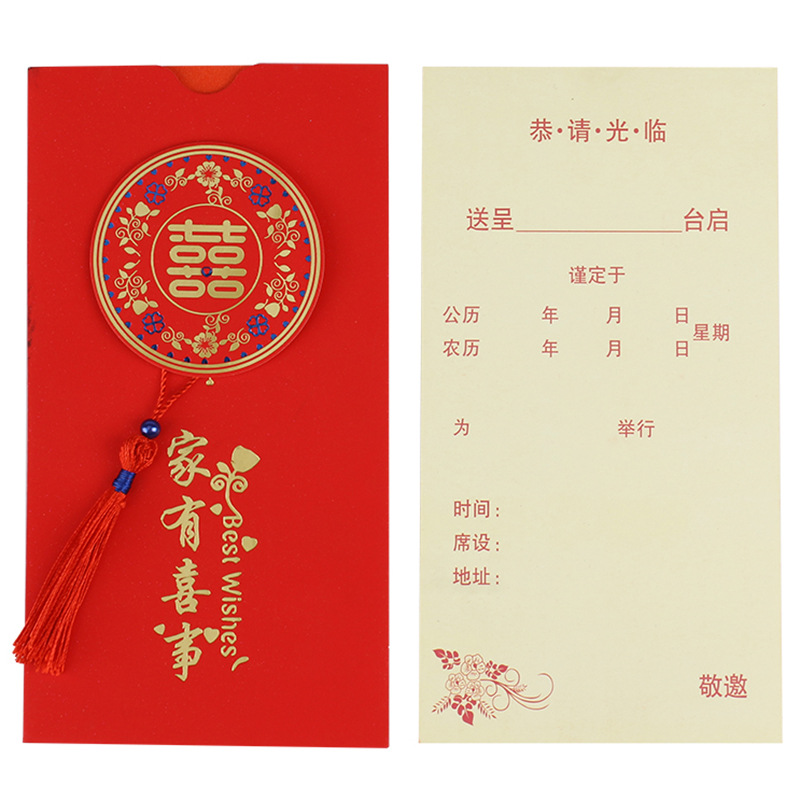 囍
家有喜事
Best Wishes
恭·请·光·临
送呈____________台启
谨定于
公历 年 月 日
星期
农历 年 月 日
为 举行
时间：
席设：
地址：
敬邀